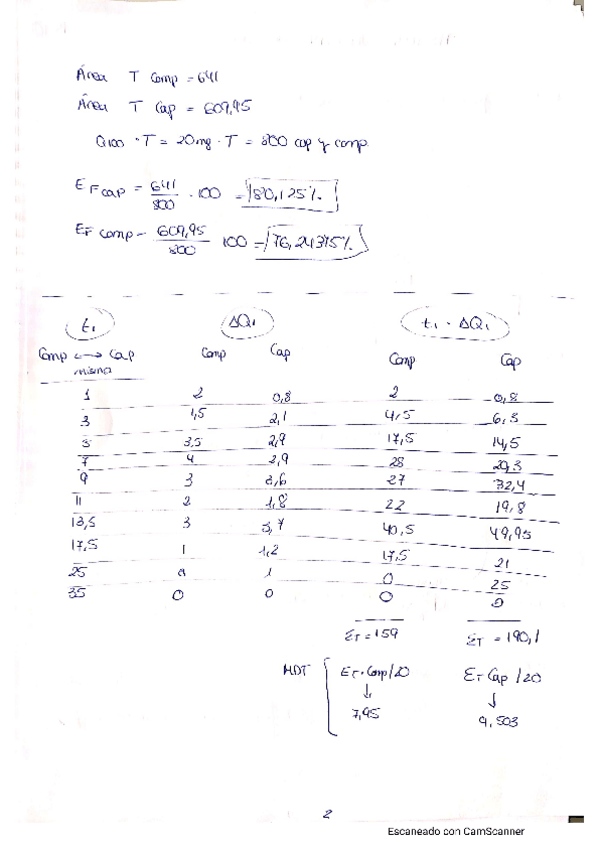 Área T Comp = 641
Área T Cap = 609,95
Q100 · T = 20mg · T = 800 cap y comp.
EF cap = 641/800 · 100 = 80,125%.
EF comp = 609,95/800 100 = 76,24375%.
t1 ΔQ1 t1 · ΔQ1
Comp ↔ Cap Comp Cap Comp Cap
misma
1 2 0,8 2 0,8
3 1,5 2,1 4,5 6,3
5 3,5 2,9 17,5 14,5
7 4 2,9 28 20,3
9 3 3,6 27 32,4
11 2 1,8 22 19,8
13,5 3 3,7 40,5 49,95
17,5 1 1,2 17,5 21
25 0 1 0 25
35 0 0 0 0
ΣT = 159 ΣT = 190,1
MDT ΣT · Comp/20 ΣT Cap /20
↓ ↓
7,95 9,503
2
Escaneado con CamScanner